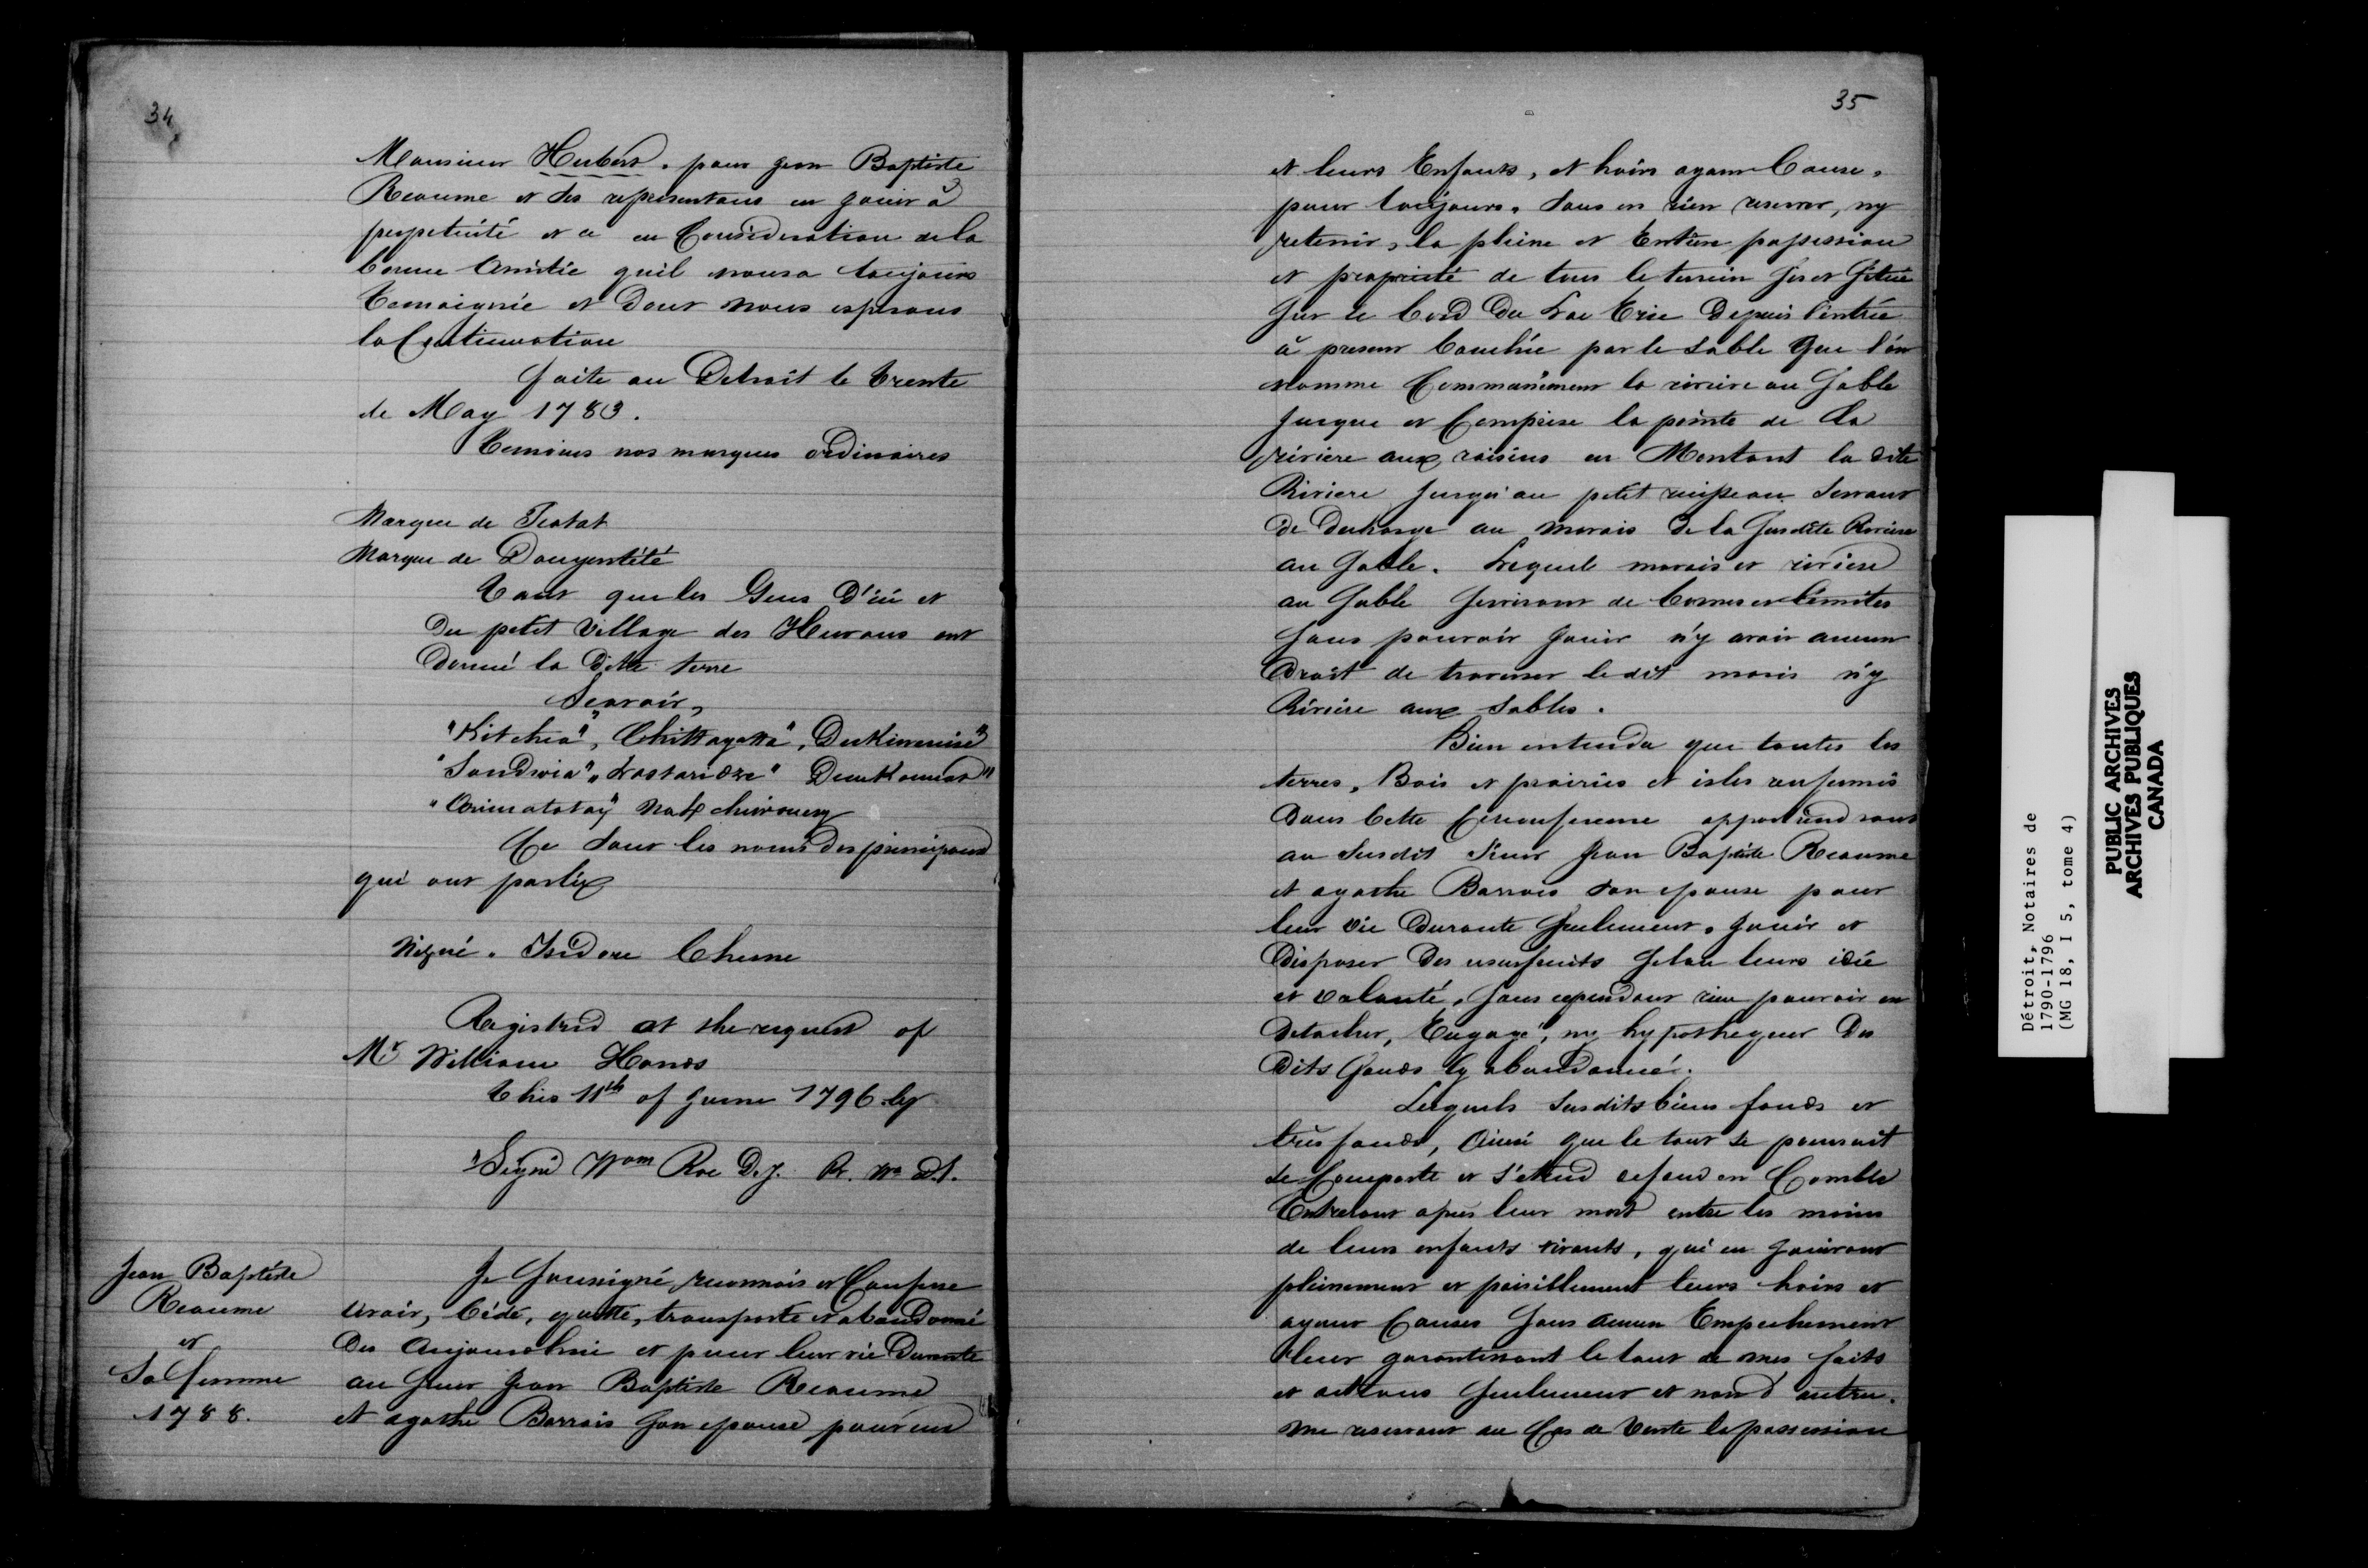 34
Monsieur Hubert. pour jean Baptiste
Reaume et des representans en jouir à
perpetuité et a en Consideration de la
bonne Amitié quil nousa toujours
temoignée et dont nous esperons
la Continuation
faite au Detroit le trente
de May 1783.
temoins nos marques ordinaires
Marque de Teatat
Marque de Douyentété
tant que les Gens D'ici et
du petit Village des Hurons ont
donné la ditte terre
Scavoir,
"Kitchea", Chittayatta",
"Sandwia", Lastaridze"
Ce sont les noms des principaux
qui ont parlix
Signé. Isidore Chesne
Registred at the request of
Mr William Hands
this 11th of June 1796 by
"Signé Wom Roe D.J. R. Wn d.t.
Jean Baptiste
Reaume
et
Sa femme
1788.
Je Soussigné, reconnois et Confesse
avoir, Cédé, quitté, transporté et abandonné
des Aujourdhui et pour leur vie Durante
au Sieur Jean Baptiste Reaume
et agathe Barrois Son epouse pour eux
35
et leurs Enfants, et hoirs ayant Cause,
pour toujours. Sans en rien reserver, ny
retenir, la pleine et Entiere possession
et propriété de tous le terrein Sis et Situé
Sur le bord du Lac Erie Depuis l'entrée
à present bouchée par le sable que l'on
nomme Communément la riviere au Sable
jusque et Comprise la pointe de la
riviere aux raisins en Montant la dite
Riviere jusqu'au petit ruisseau Servant
de decharge au marais de la Susdite Riviere
au Sable. Lequels marais et riviere
au Sable Serviront de bornes et limites
Sans pouvoir jouir n'y avoir aucun
Droit de traverser le dit marais n'y
Riviere aux Sables.
Bien entendu que toutes les
terres, Bois et prairies et isles renfermés
Dans Cette Circonference appartiendront
au Susdit Sieur Jean Baptiste Reaume
et agathe Barrois Son epouse pour
leur vie Durante Seulement, jouir et
Disposer des usufruits Selon leurs idée
et volonté, Sans cependant rien pouvoir en
detacher, Engagé, ny hypothequer Des
Dits fonds Cy abandonné.
Lesquels Susdits biens fonds et
très fonds, Ainsi que le tout se poursuit
se Comporte et s'etend de fond en Comble
Entreront après leur mort entre les mains
de leurs enfants vivants, qui en jouiront
pleinement et paisiblement leurs hoirs et
ayant Causes Sans aucun Empechement
leur garantissant le tout de mes faits
et actions Seulement et non d'autre.
me reservant au Cas de Vente la possession
Détroit, Notaires de
1790-1796
(MG 18, I 5, tome 4)
PUBLIC ARCHIVES
ARCHIVES PUBLIQUES
CANADA